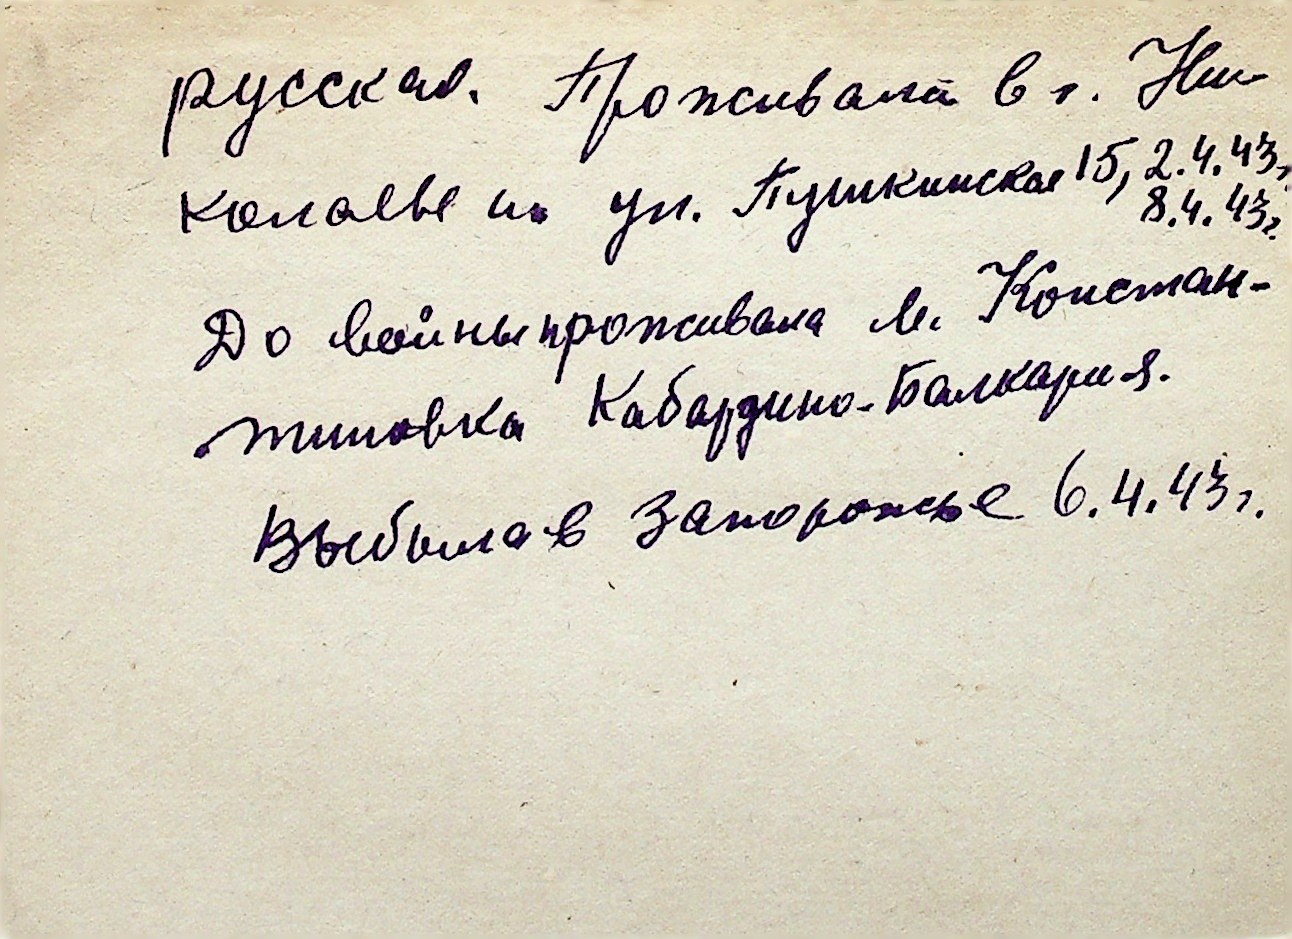 русская. Проживала в г. Ни-
колаеве по ул. Пушкинская 15, 2.4.43г.
8.4.43г.
До войны проживала м. Констан-
тиновка Кабардино-Балкария.
Выбыла в Запорожье 6.4.43г.